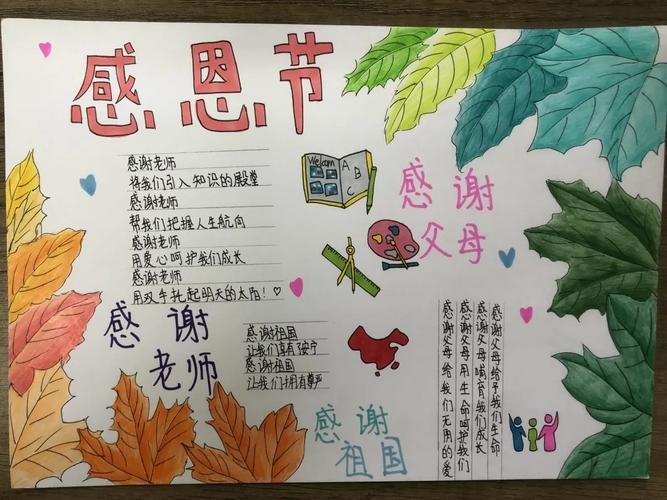 感恩节
感谢老师
将我们引入知识的殿堂
感谢老师
帮我们把握人生航向
感谢老师
用爱心呵护我们成长
感谢老师
用双手托起明天的太阳！
Welcom
A
B
C
感谢
父母
感谢
老师
感谢祖国
让我们享有安宁
感谢祖国
让我们拥有尊严
感谢
祖国
感谢父母给予我们生命
感谢父母哺育我们成长
感谢父母用生命呵护我们
感谢父母给我们无用的爱